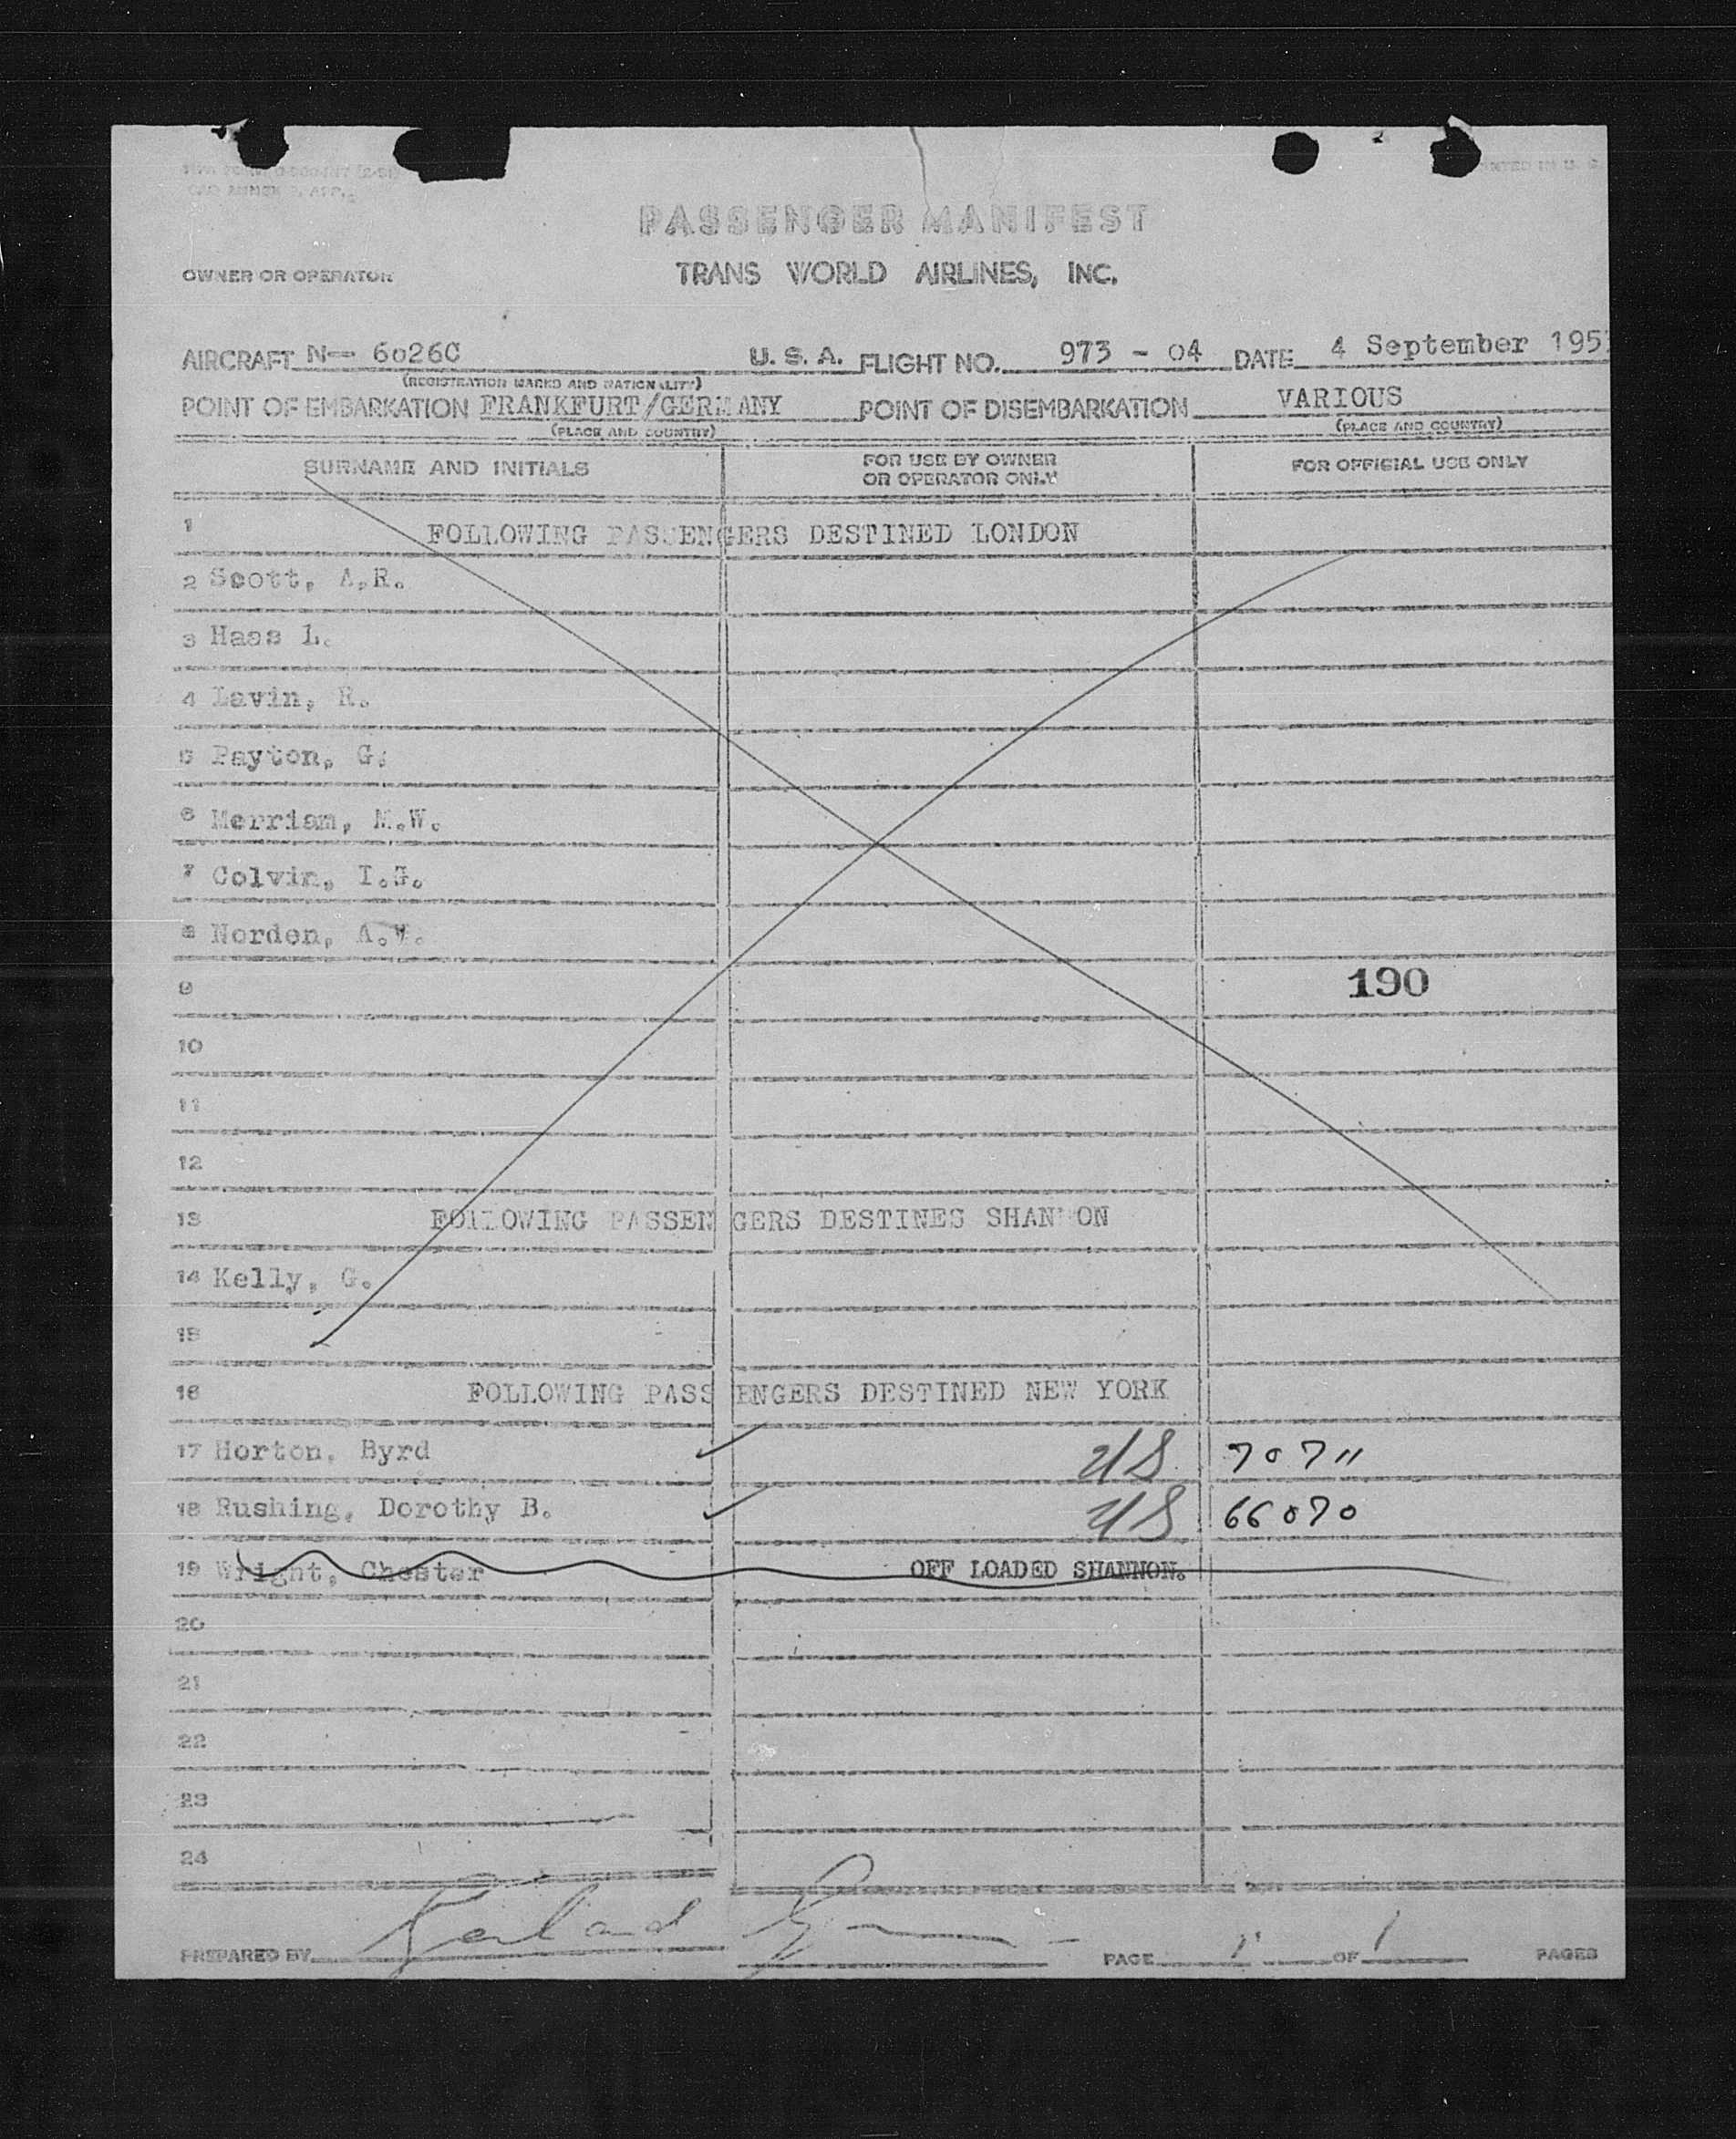 PRINTED IN U. S.
PASSENGER MANIFEST
OWNER OR OPERATOR TRANS WORLD AIRLINES, INC.
AIRCRAFT N-- 6026C U. S. A. FLIGHT NO. 973 - 04 DATE 4 September 195
(REGISTRATION MARKS AND NATIONALITY)
POINT OF EMBARKATION FRANKFURT/GERMANY POINT OF DISEMBARKATION VARIOUS
(PLACE AND COUNTRY) (PLACE AND COUNTRY)
SURNAME AND INITIALS FOR USE BY OWNER OR OPERATOR ONLY FOR OFFICIAL USE ONLY
1 FOLLOWING PASSENGERS DESTINED LONDON
2 Scott, A.R.
3 Haas L.
4 Lavin, R.
5 Payton, G.
6 Merriam, M.W.
7 Colvin, I.G.
8 Norden, A.W.
9 190
10
11
12
13 FOLLOWING PASSENGERS DESTINES SHANNON
14 Kelly, G.
15
16 FOLLOWING PASSENGERS DESTINED NEW YORK
17 Horton, Byrd US 70711
18 Rushing, Dorothy B. US 66070
19 Wright, Chester OFF LOADED SHANNON.
20
21
22
23
24
PREPARED BY PAGE 1 OF 1 PAGES